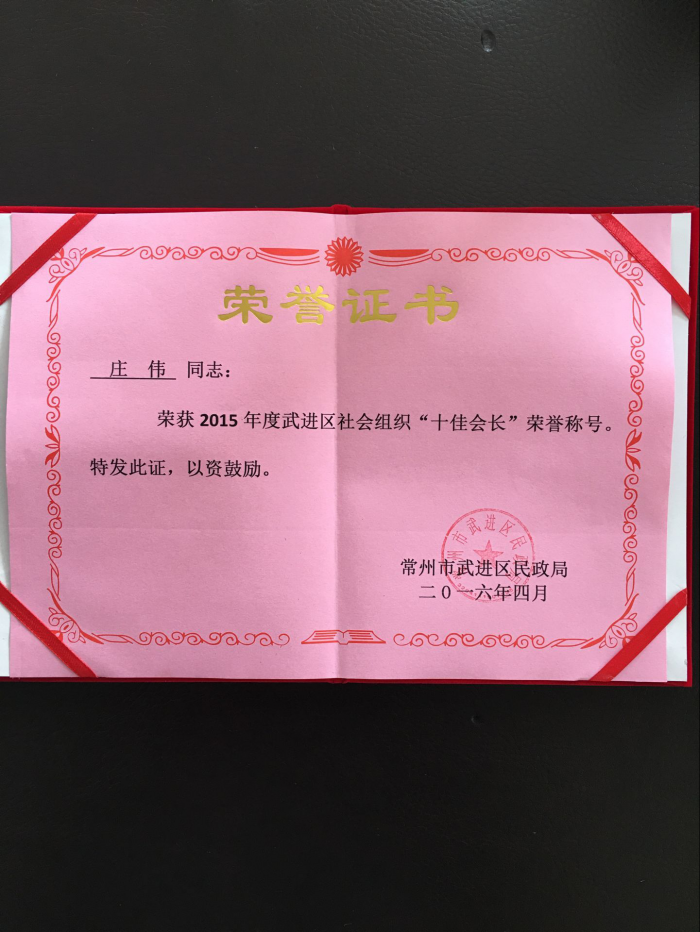 荣誉证书
庄 伟 同志：
荣获 2015 年度武进区社会组织“十佳会长”荣誉称号。
特发此证，以资鼓励。
常州市武进区民政局
二０一六年四月